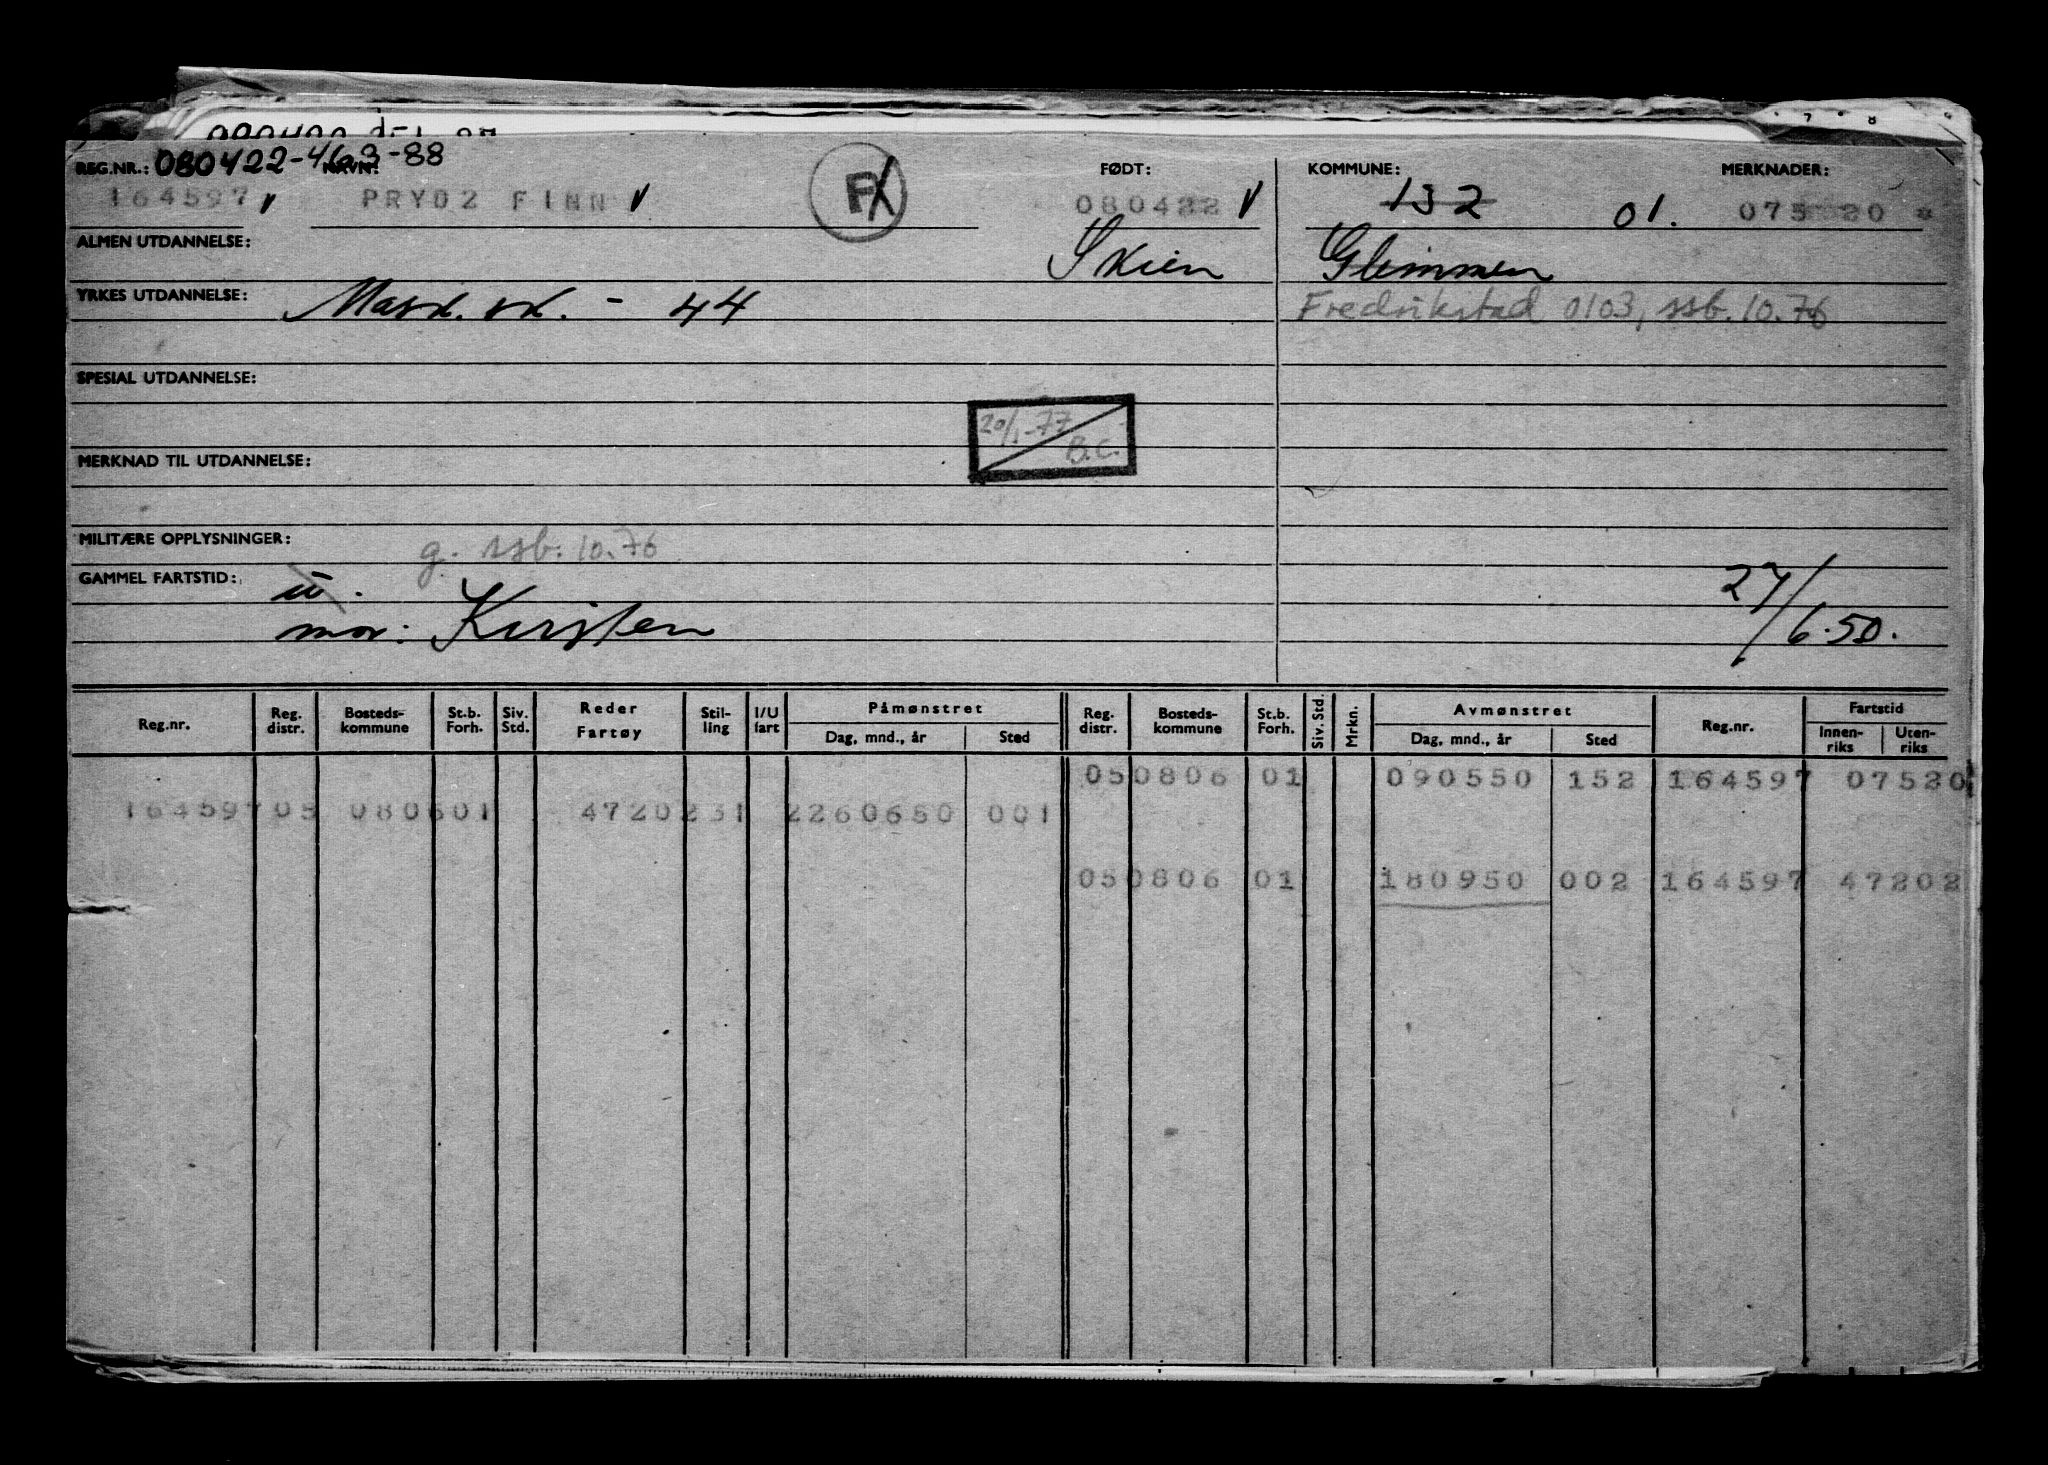 REG.NR.: 080422-4623-88 NAVN: FØDT: KOMMUNE: MERKNADER:
164597 v PRYDZ FINN v F 080422 v 132 01. 075 20 *
ALMEN UTDANNELSE: Skien Glemmen
YRKES UTDANNELSE: Mask. sk. - 44 Fredrikstad 0103, ssb. 10.76
SPESIAL UTDANNELSE:
20/1-77
B.C.
MERKNAD TIL UTDANNELSE:
MILITÆRE OPPLYSNINGER: g. ssb. 10.76
GAMMEL FARTSTID: u. 27/6.50.
mor: Kirsten
Reg.nr. Reg. distr. Bosteds-kommune St.b. Forh. Siv. Std. Reder Fartøy Stil-ling I/U fart Påmønstret Dag, mnd., år Sted Reg. distr. Bosteds-kommune St.b. Forh. Siv. Std. Mrkn. Avmønstret Dag, mnd., år Sted Reg.nr. Fartstid Innen-riks Uten-riks
050806 01 090550 152 164597 07520
16459705 080601 4720231 2260650 001
050806 01 180950 002 164597 47202